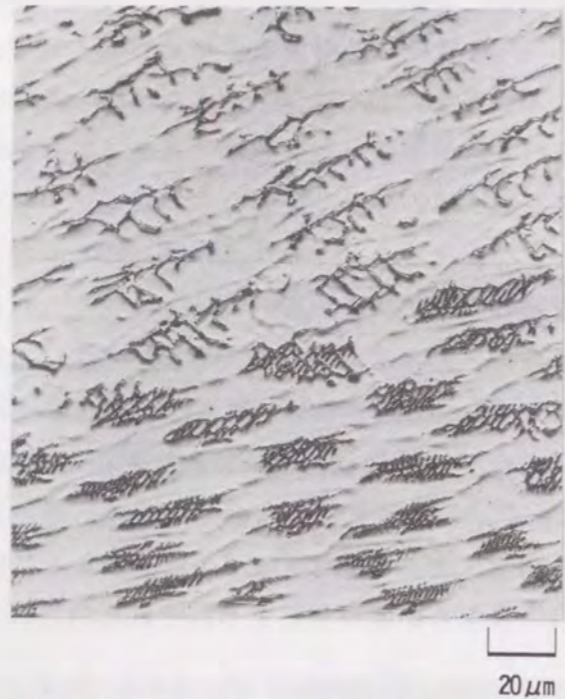 20μm